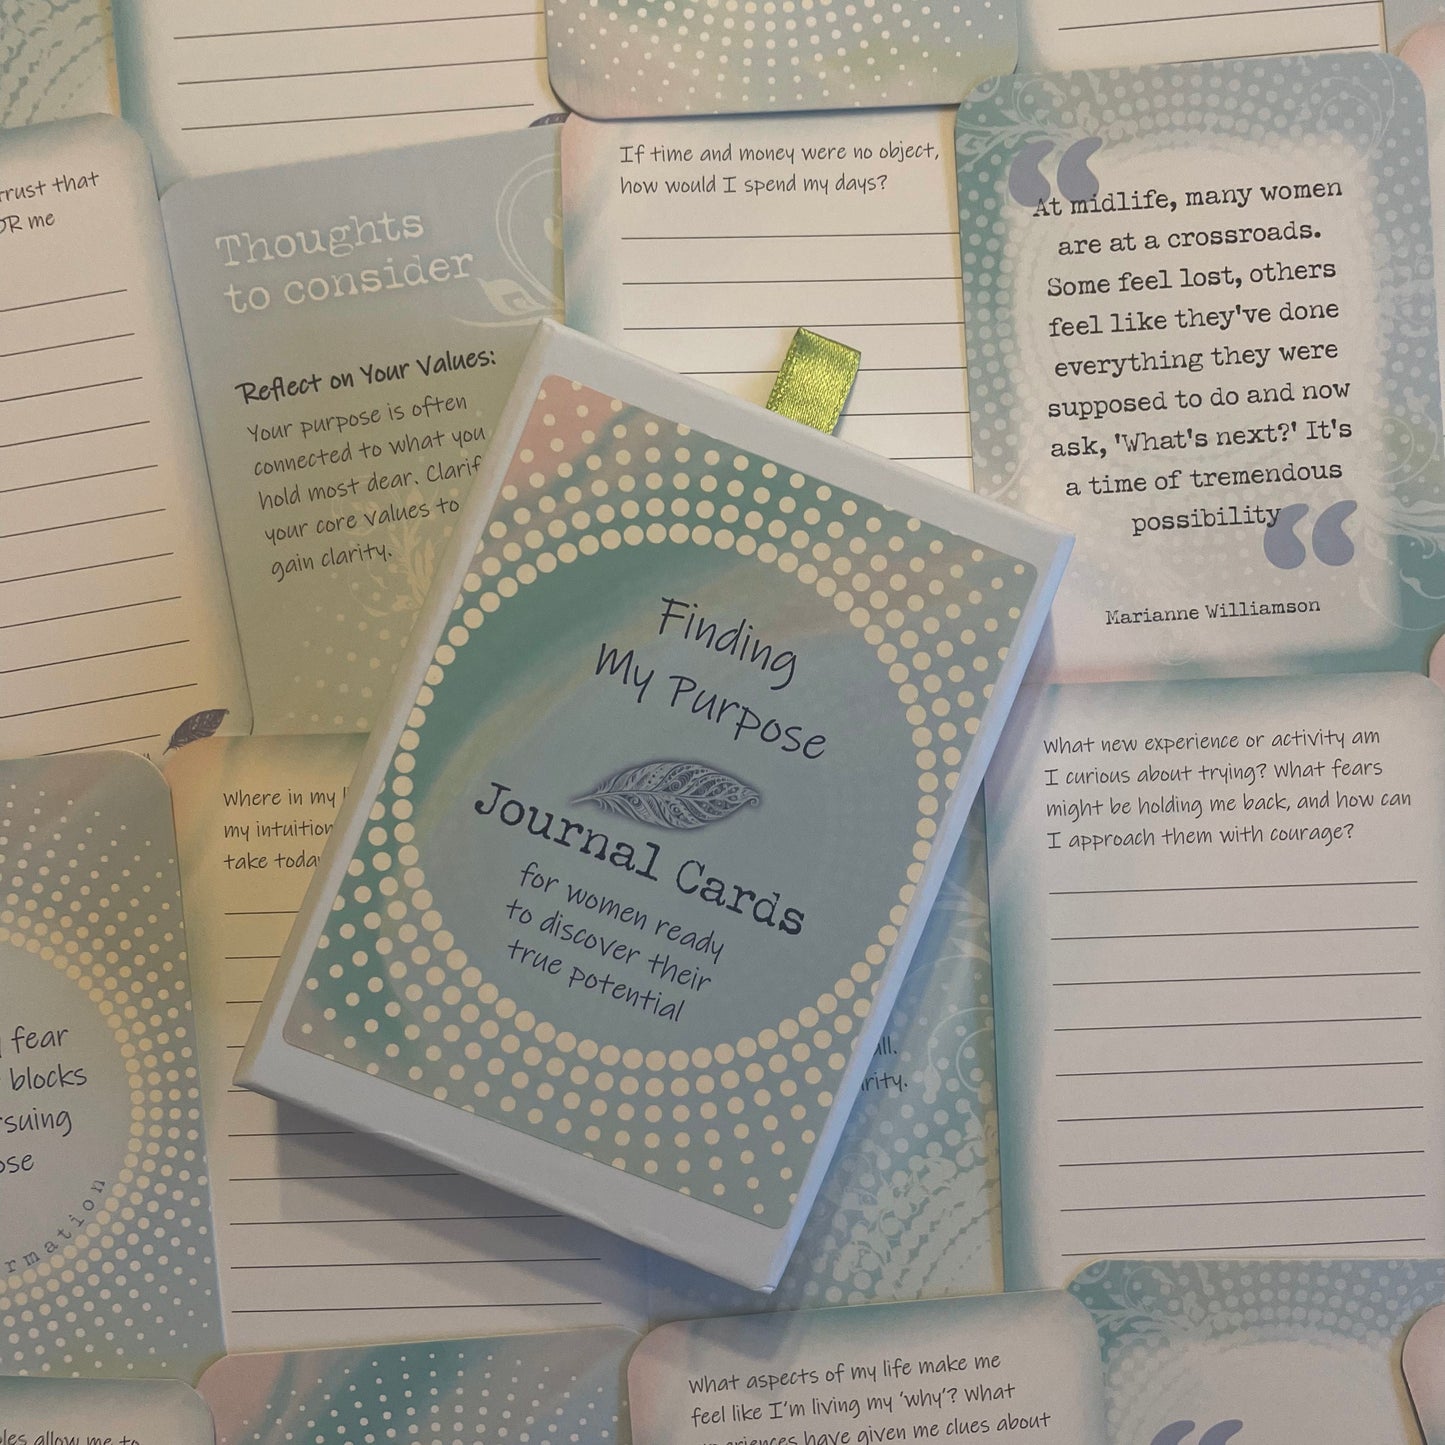 trust that
OR me
Thoughts
to consider
Reflect on Your Values:
Your purpose is often
connected to what you
hold most dear. Clarif
your core values to
gain clarity.
If time and money were no object,
how would I spend my days?
At midlife, many women
are at a crossroads.
Some feel lost, others
feel like they've done
everything they were
supposed to do and now
ask, 'What's next?' It's
a time of tremendous
possibility
Marianne Williamson
Finding
My Purpose
Journal Cards
for women ready
to discover their
true potential
Where in my
my intuition
take toda
What new experience or activity am
I curious about trying? What fears
might be holding me back, and how can
I approach them with courage?
fear
blocks
rsuing
ose
rmation
all.
rity.
What aspects of my life make me
feel like I'm living my 'why'? What
have given me clues about
allow me to